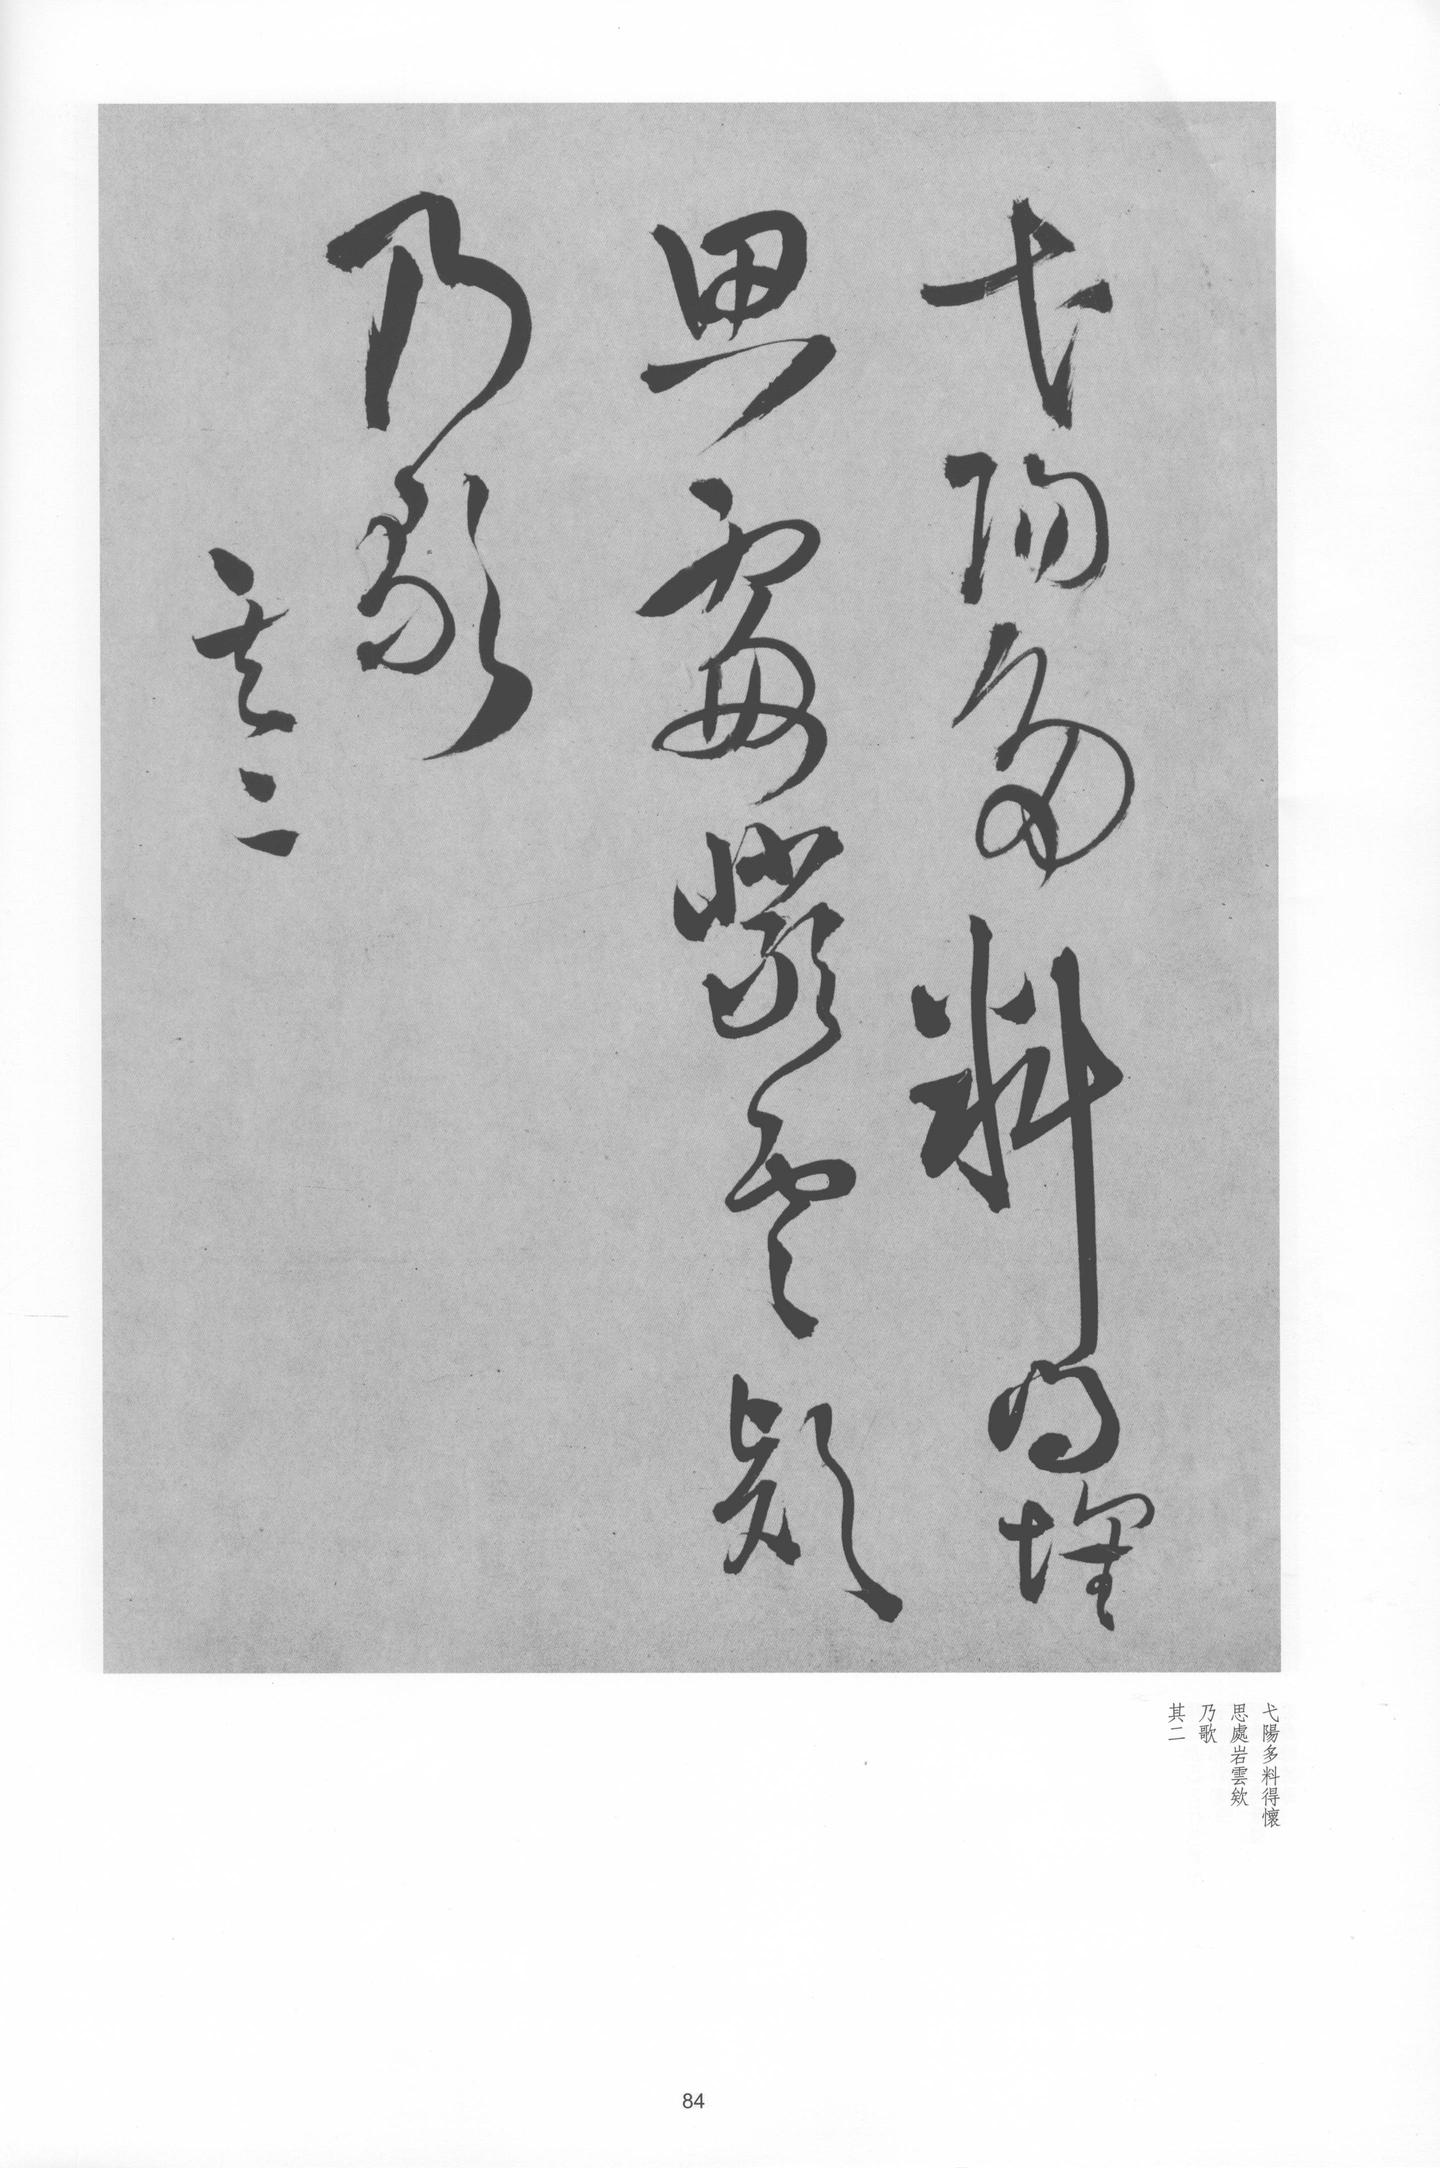 弋陽多料得懷
思處巖雲欸
乃歌
其二
弋陽多料得懷
思處岩雲欸
乃歌
其二
84